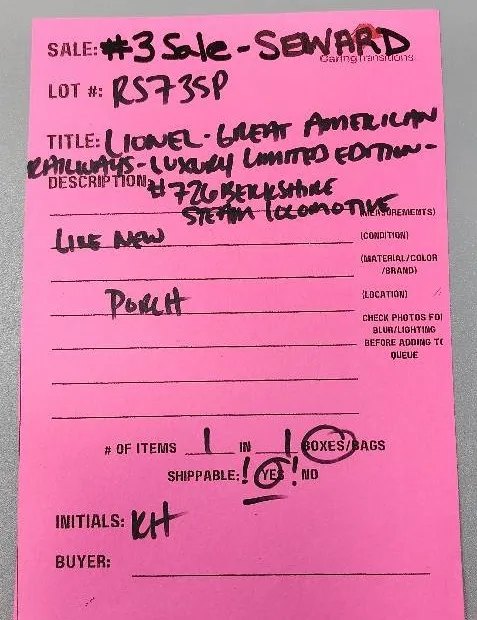 SALE: #3 Sale - SEWARD
CaringTransitions
LOT #: RS73SP
TITLE: LIONEL - GREAT AMERICAN
RAILWAYS - LUXURY LIMITED EDITION -
DESCRIPTION #726 BERKSHIRE
STEAM LOCOMOTIVE MEASUREMENTS)
LIKE NEW (CONDITION)
(MATERIAL/COLOR
/BRAND)
PORCH (LOCATION)
CHECK PHOTOS FO
BLUR/LIGHTING
BEFORE ADDING TO
QUEUE
# OF ITEMS 1 IN 1 BOXES/BAGS
SHIPPABLE: ! YES ! NO
INITIALS: KH
BUYER: